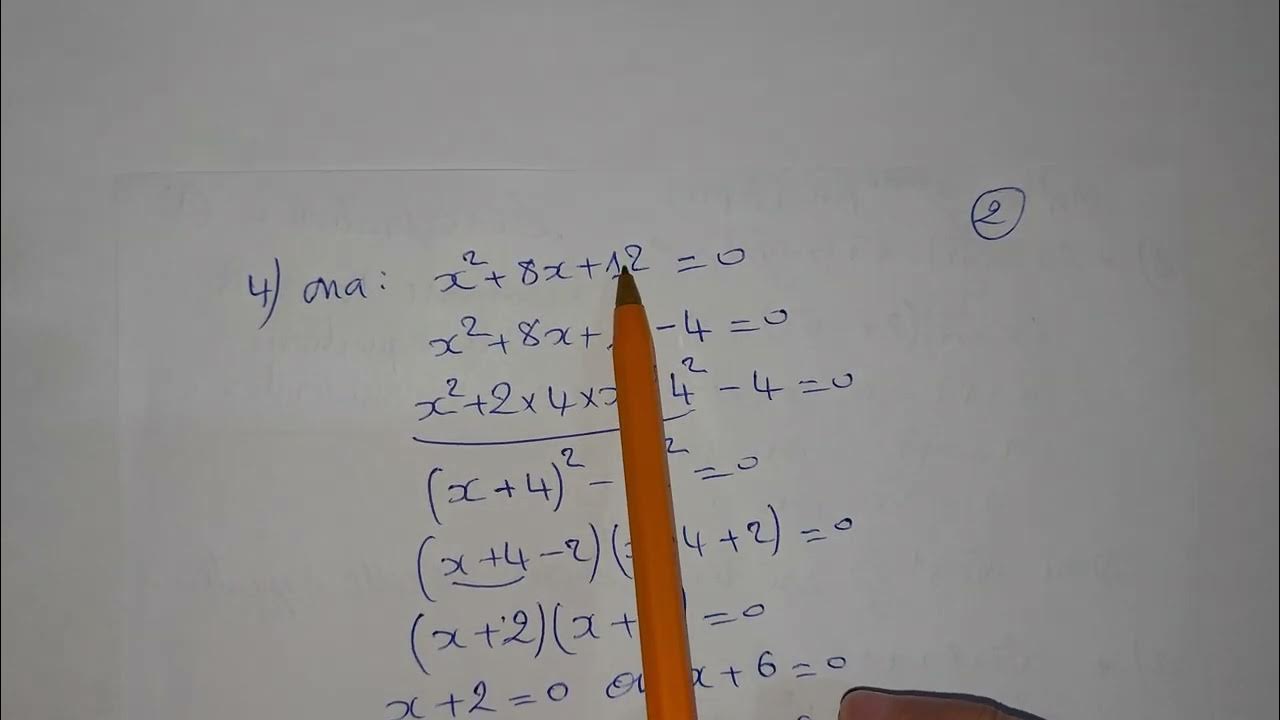 ②
4) on a : x² + 8x + 12 = 0
x² + 8x + - 4 = 0
x² + 2 × 4 × x 4² - 4 = 0
(x + 4)² - ² = 0
(x + 4 - 2)( 4 + 2) = 0
(x + 2)(x + ) = 0
x + 2 = 0 ou x + 6 = 0